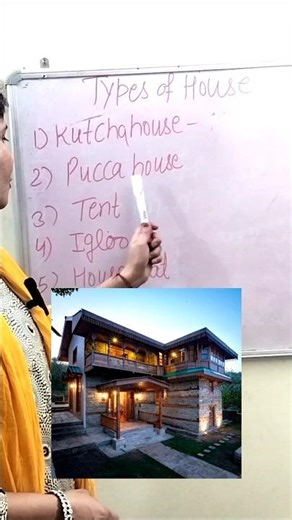 Types of House
1) Kutchahouse -
2) Pucca house
3) Tent
4) Igloo
5)